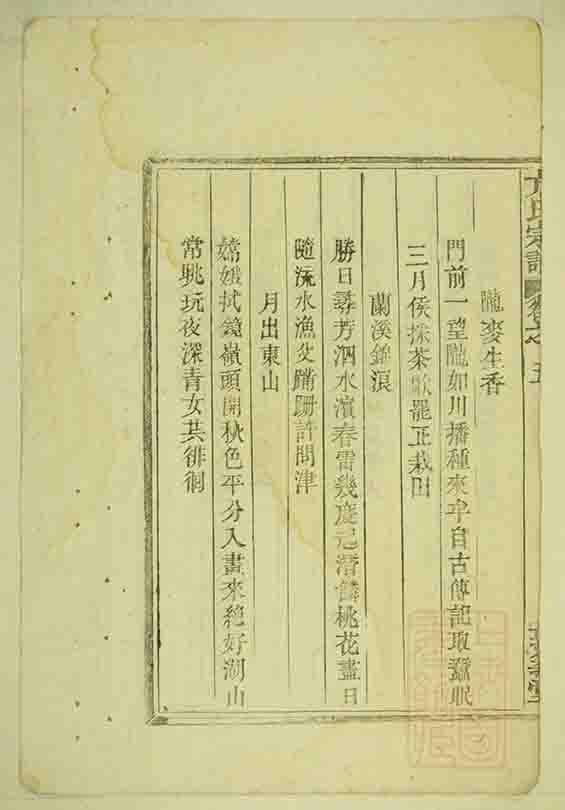 隴麥生香
門前一望隴如川播種來牟自古傳記取蠶眠
三月候採茶歌罷正栽田
蘭溪錦浪
勝日尋芳泗水濱春雷幾度起潛鱗桃花盡日
隨流水漁父蹣跚許問津
月出東山
嫦娥拭鏡嶺頭開秋色平分入畫來絕好湖山
常眺玩夜深青女共徘徊
氏宗譜